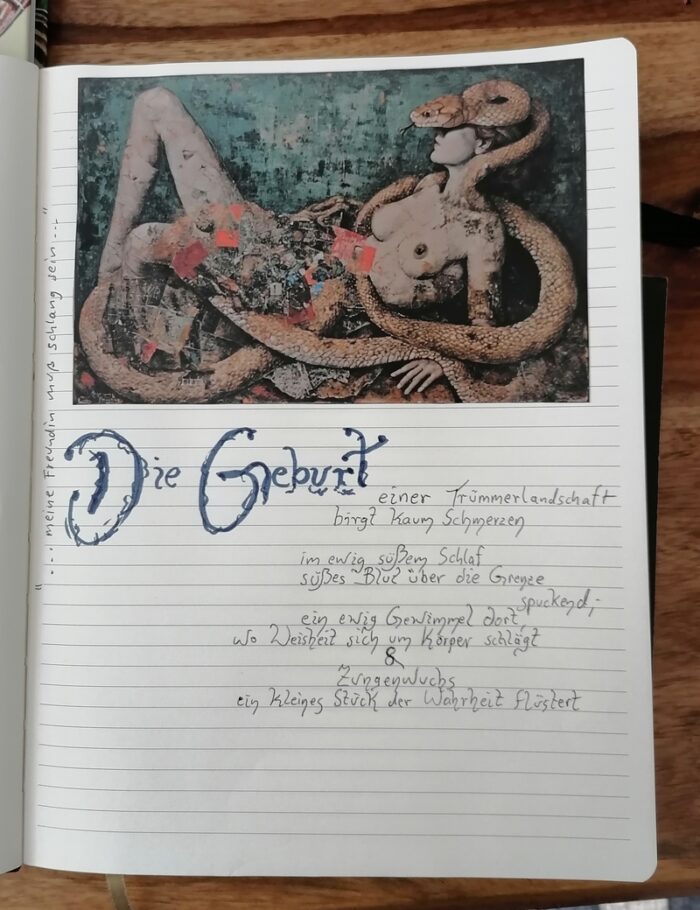 "... meine Freundin muß schlang sein ..."
Die Geburt
einer Trümmerlandschaft
birgt kaum Schmerzen
im ewig süßem Schlaf
süßes Blut über die Grenze
spuckend,
ein ewig Gewimmel dort,
wo Weisheit sich um Körper schlägt
&
Zungenwuchs
ein kleines Stück der Wahrheit flüstert